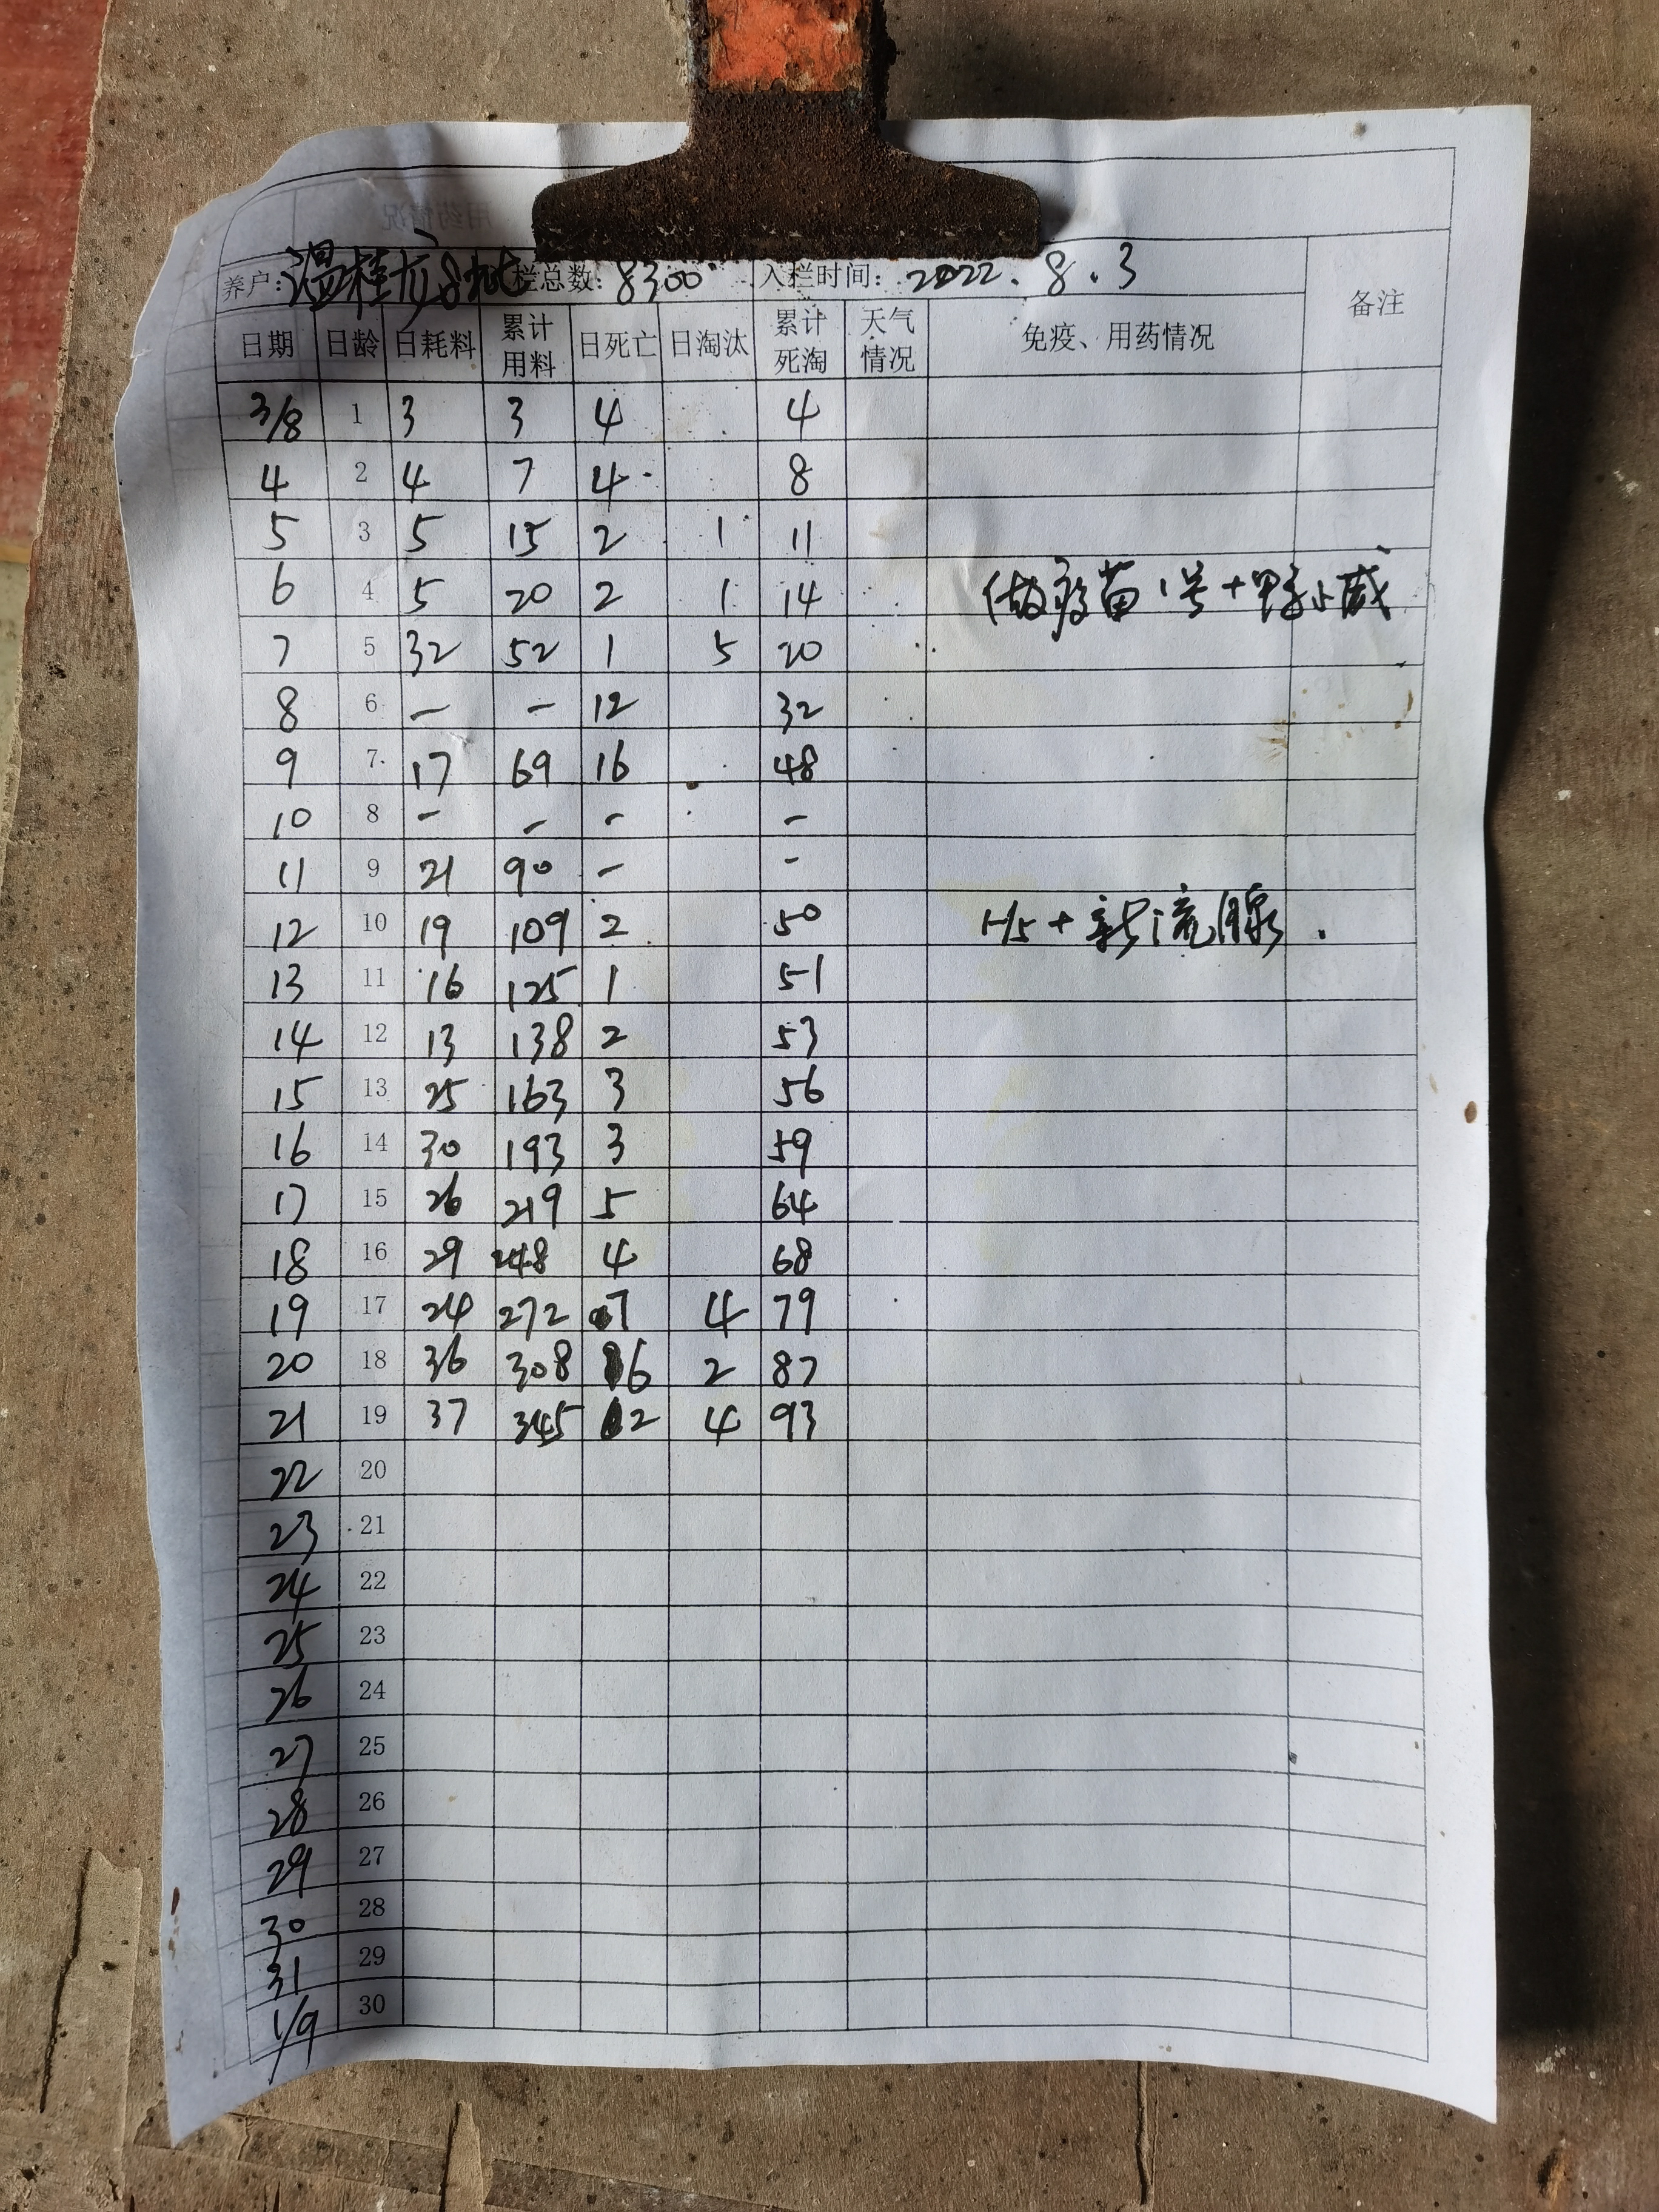 养户: 温桂龙8批 栏总数: 8300 入栏时间: 2022.8.3 备注
日期 日龄 日耗料 累计用料 日死亡 日淘汰 累计死淘 天气情况 免疫、用药情况
3/8 1 3 3 4 4
4 2 4 7 4 8
5 3 5 15 2 1 11
6 4 5 20 2 1 14 做疫苗1号+
7 5 32 52 1 5 20
8 6 - - 12 32
9 7 17 69 16 48
10 8 - - - -
11 9 21 90 - -
12 10 19 109 2 50 H5+新流腺
13 11 16 125 1 51
14 12 13 138 2 53
15 13 25 163 3 56
16 14 30 193 3 59
17 15 26 219 5 64
18 16 29 248 4 68
19 17 24 272 7 4 79
20 18 36 308 6 2 87
21 19 37 345 2 4 93
22 20
23 21
24 22
25 23
26 24
27 25
28 26
29 27
30 28
31 29
1/9 30